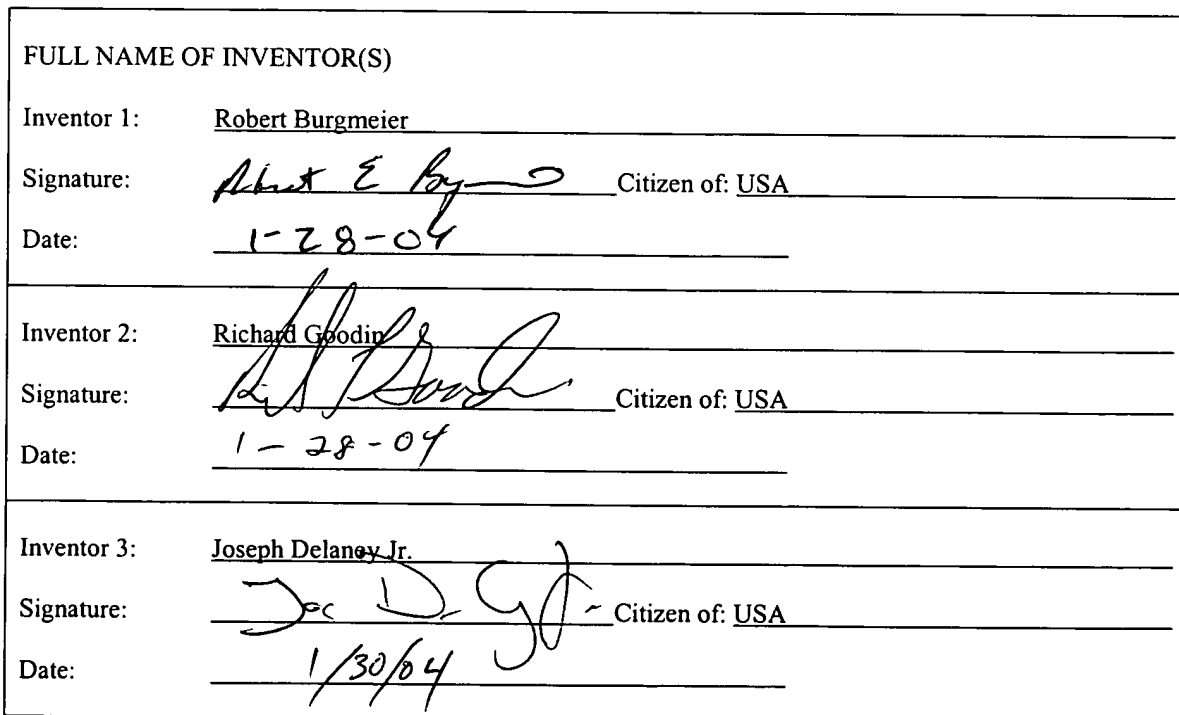 FULL NAME OF INVENTOR(S)
Inventor 1: Robert Burgmeier
Signature: Robert E Citizen of: USA
Date: 1-28-04
Inventor 2: Richard Goodin
Signature: Citizen of: USA
Date: 1-28-04
Inventor 3: Joseph Delaney Jr.
Signature: Citizen of: USA
Date: 1/30/04